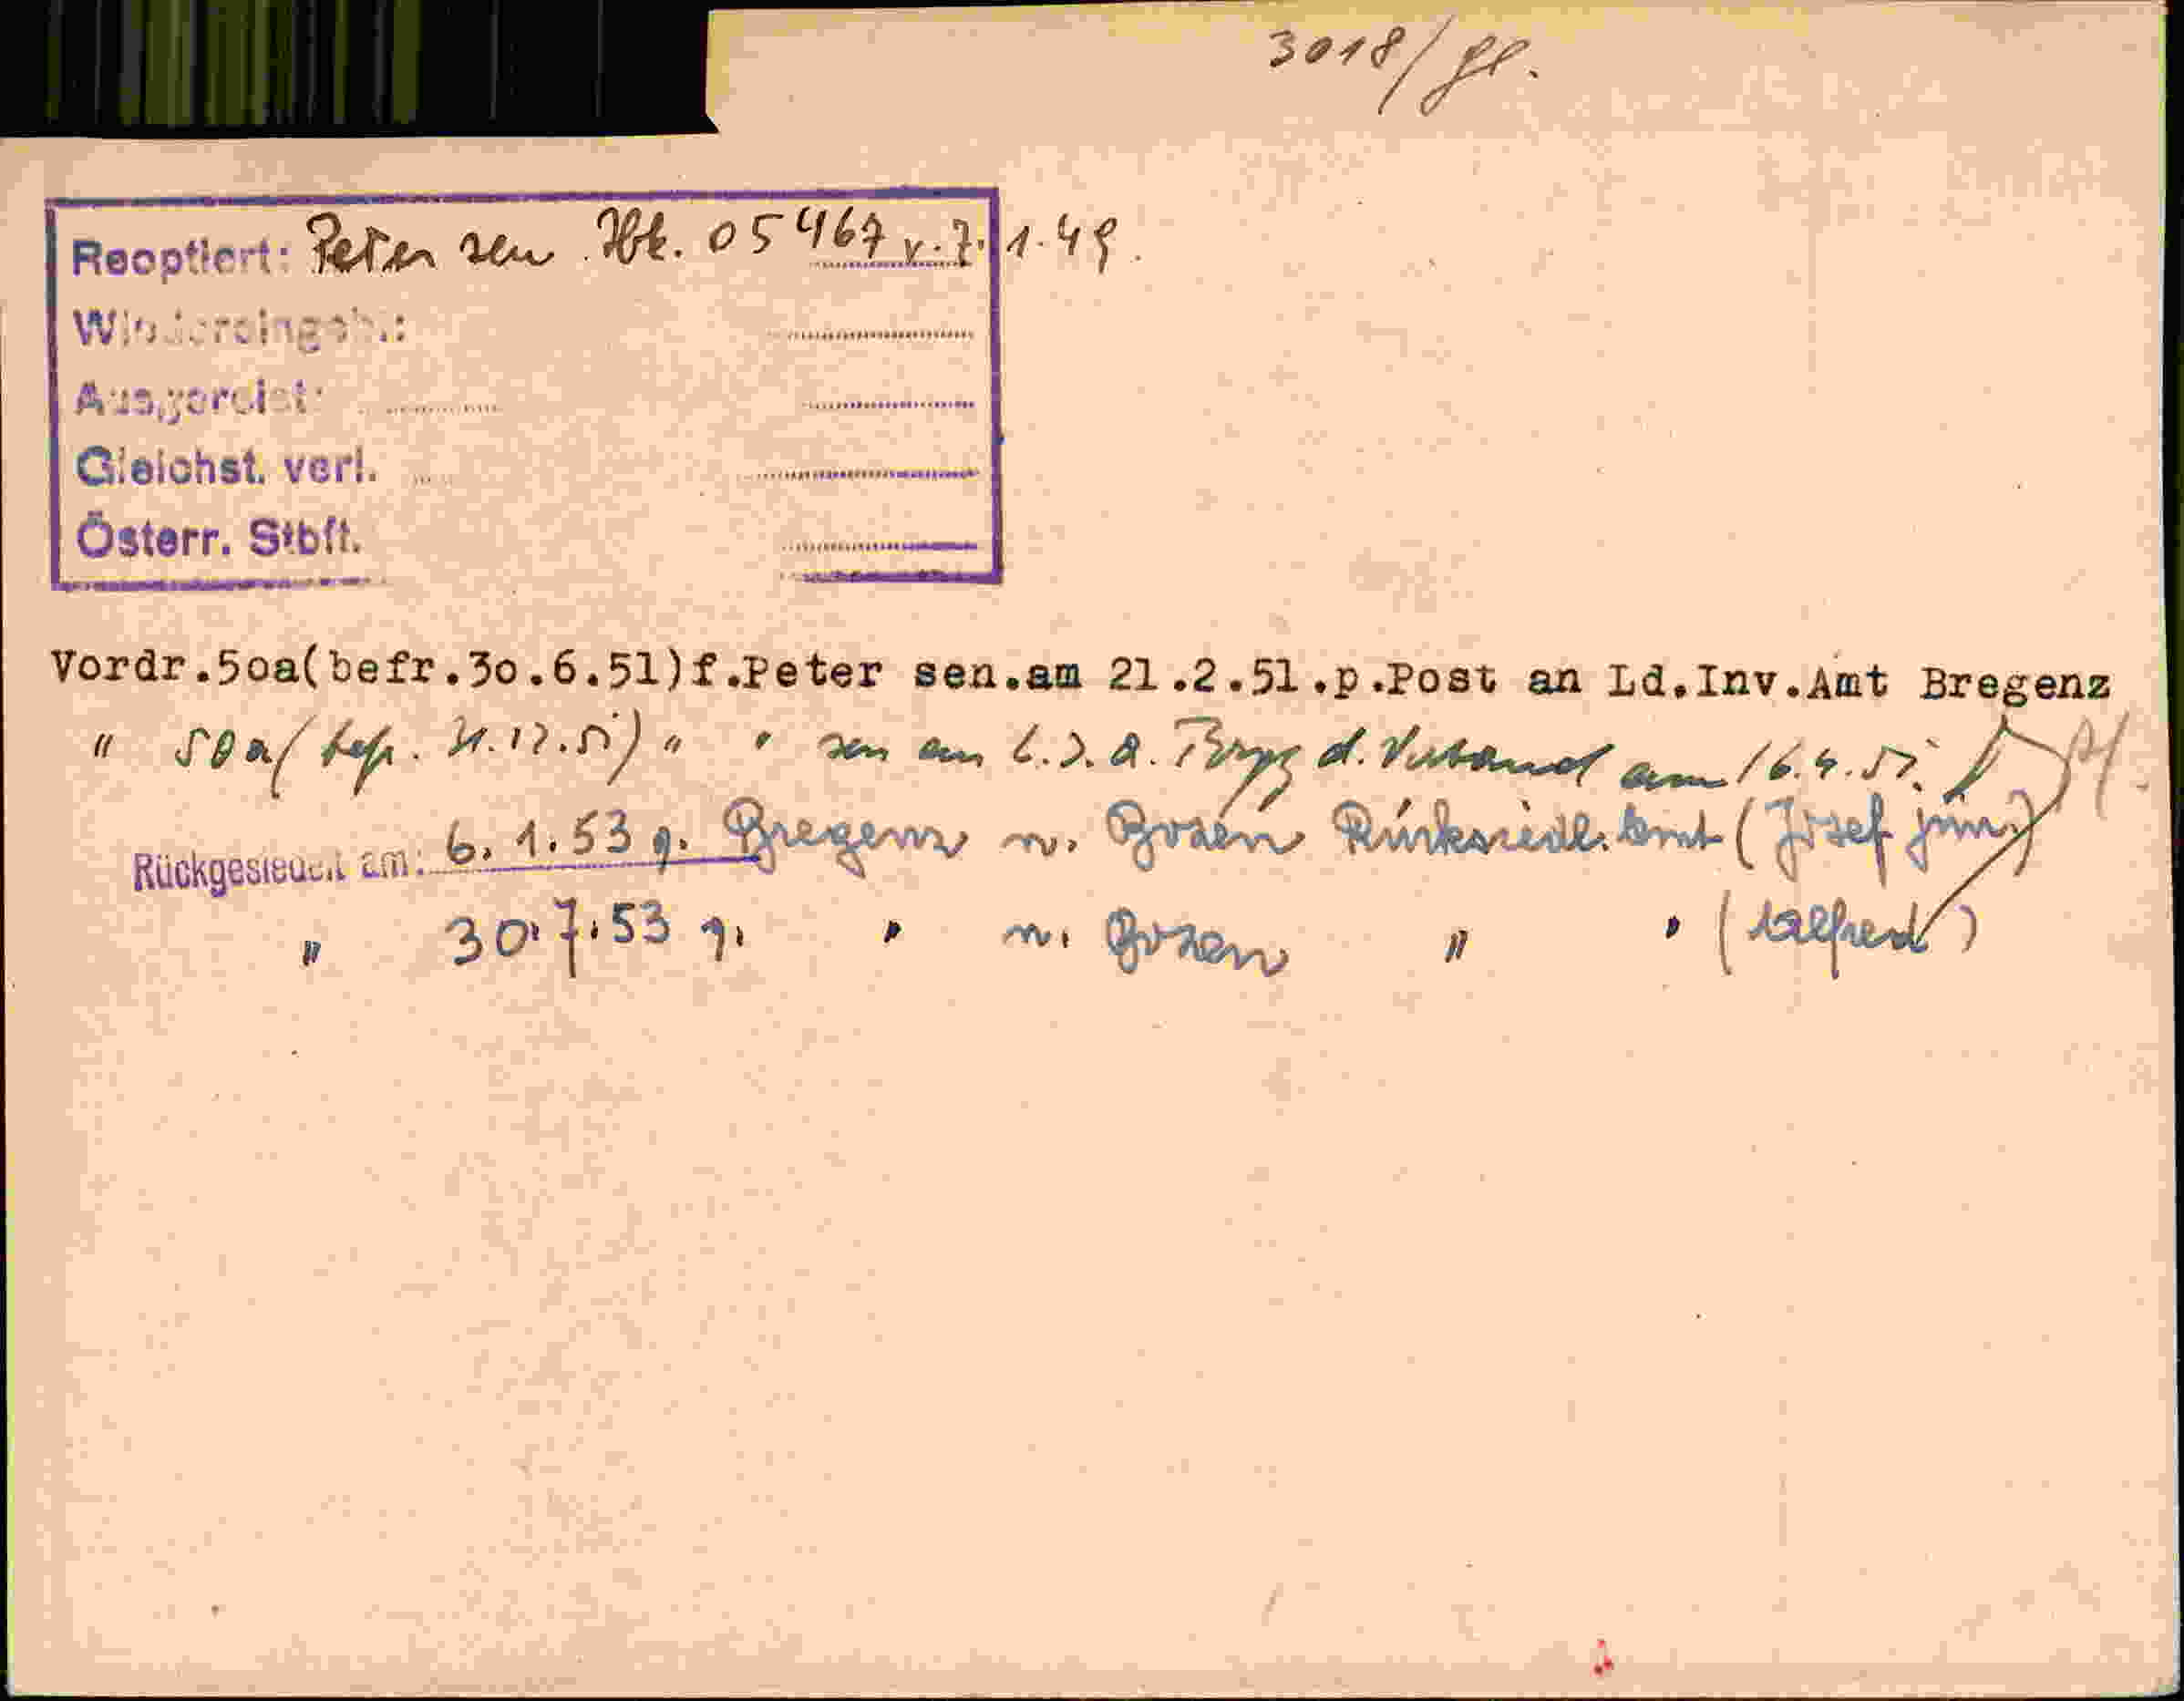 3018/
Reoptiert: Peter sen Hbk. 05467 v. 7. 1. 49.
Wiedereingeb.:
Ausgereist:
Gleichst. verl.
Österr. Stbft.
Vordr.50a(befr.30.6.51)f.Peter sen.am 21.2.51.p.Post an Ld.Inv.Amt Bregenz
" 50a (befr. 31.12.51) " " sen am L.I.A. d. Verband am 16.4.
Rückgesiedelt am: 6. 1. 53 g. Bregenz n. Bozen Rücksiedl. Amt (Josef jun.)
" 30. 7. 53 g. " n. Bozen " " (Alfred)